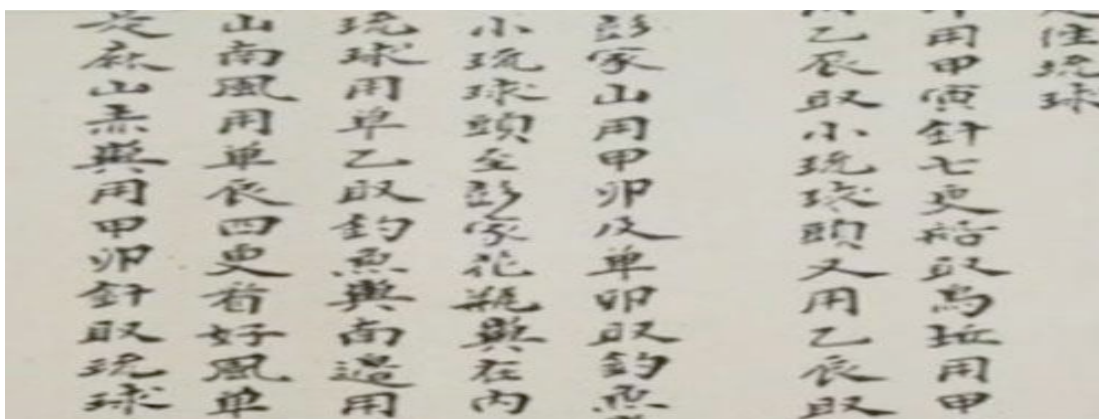 往琉球
用甲寅針七更船取烏坵用甲
乙辰取小琉球頭又用乙辰取
彭家山用甲卯及单卯取釣魚
小琉球頭至彭家花瓶㠘在内
琉球用单乙取釣魚㠘南邉用
山南風用单辰四更看好風单
是麻山赤㠘用甲卯針取琉球